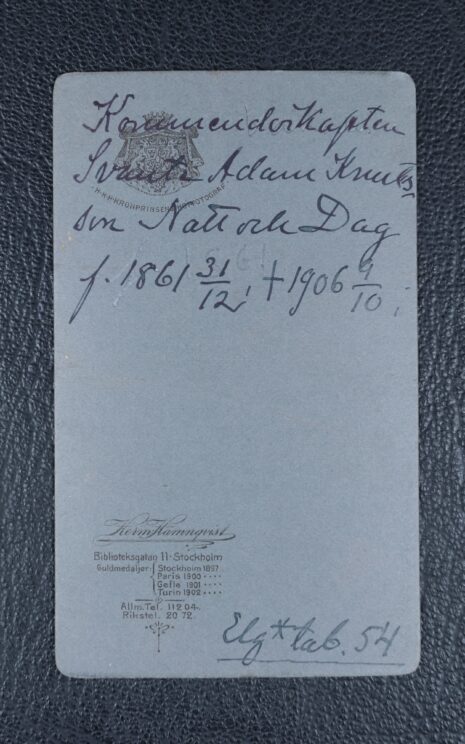 Kommendörkapten
Svante Adam Knuts-
son Natt och Dag
f. 1861 31/12, † 1906 9/10;
1861
Herm Hamnqvist
Biblioteksgatan 11. Stockholm
Guldmedaljer: Stockholm 1897
Paris 1900 ····
Gefle 1901 ····
Turin 1902 ····
Allm. Tel. 112 04.
Rikstel. 20 72.
Elg* tab. 54